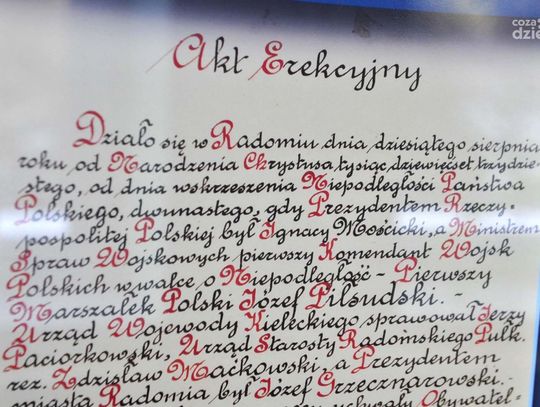 coza
dzie
Akt Erekcyjny
Działo się w Radomiu dnia, dziesiątego sierpnia
roku, od Narodzenia Chrystusa, tysiąc dziewięćset trzydzie-
stego, od dnia wskrzeszenia Niepodległości Państwa
Polskiego, dwunastego, gdy Prezydentem Rzeczy-
pospolitej Polskiej był Ignacy Mościcki, a Ministrem
Spraw Wojskowych pierwszy Komendant Wojsk
Polskich w walce o Niepodległość - Pierwszy
Marszałek Polski Józef Piłsudski. -
Urząd Wojewody Kieleckiego sprawował Jerzy
Paciorkowski, Urząd Starosty Radomskiego Pułk.
rez. Zdzisław Maćkowski, a Prezydentem
miasta Radomia był Józef Grzecznarowski. -
uchwały Obywatel-